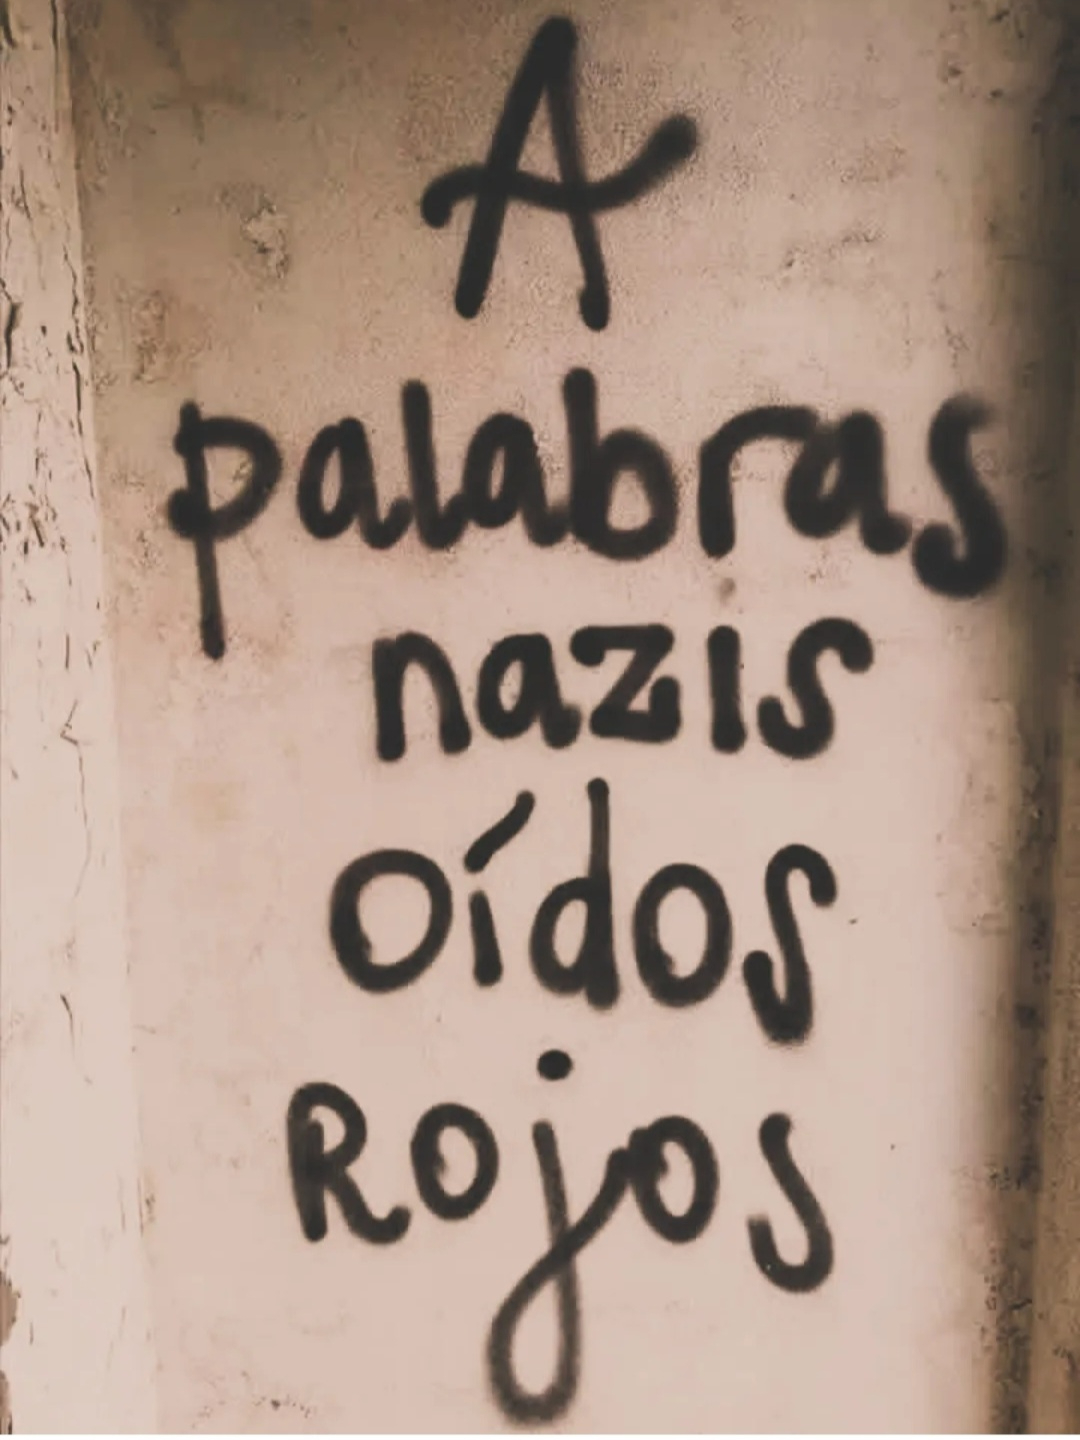 A
palabras
nazis
oídos
Rojos